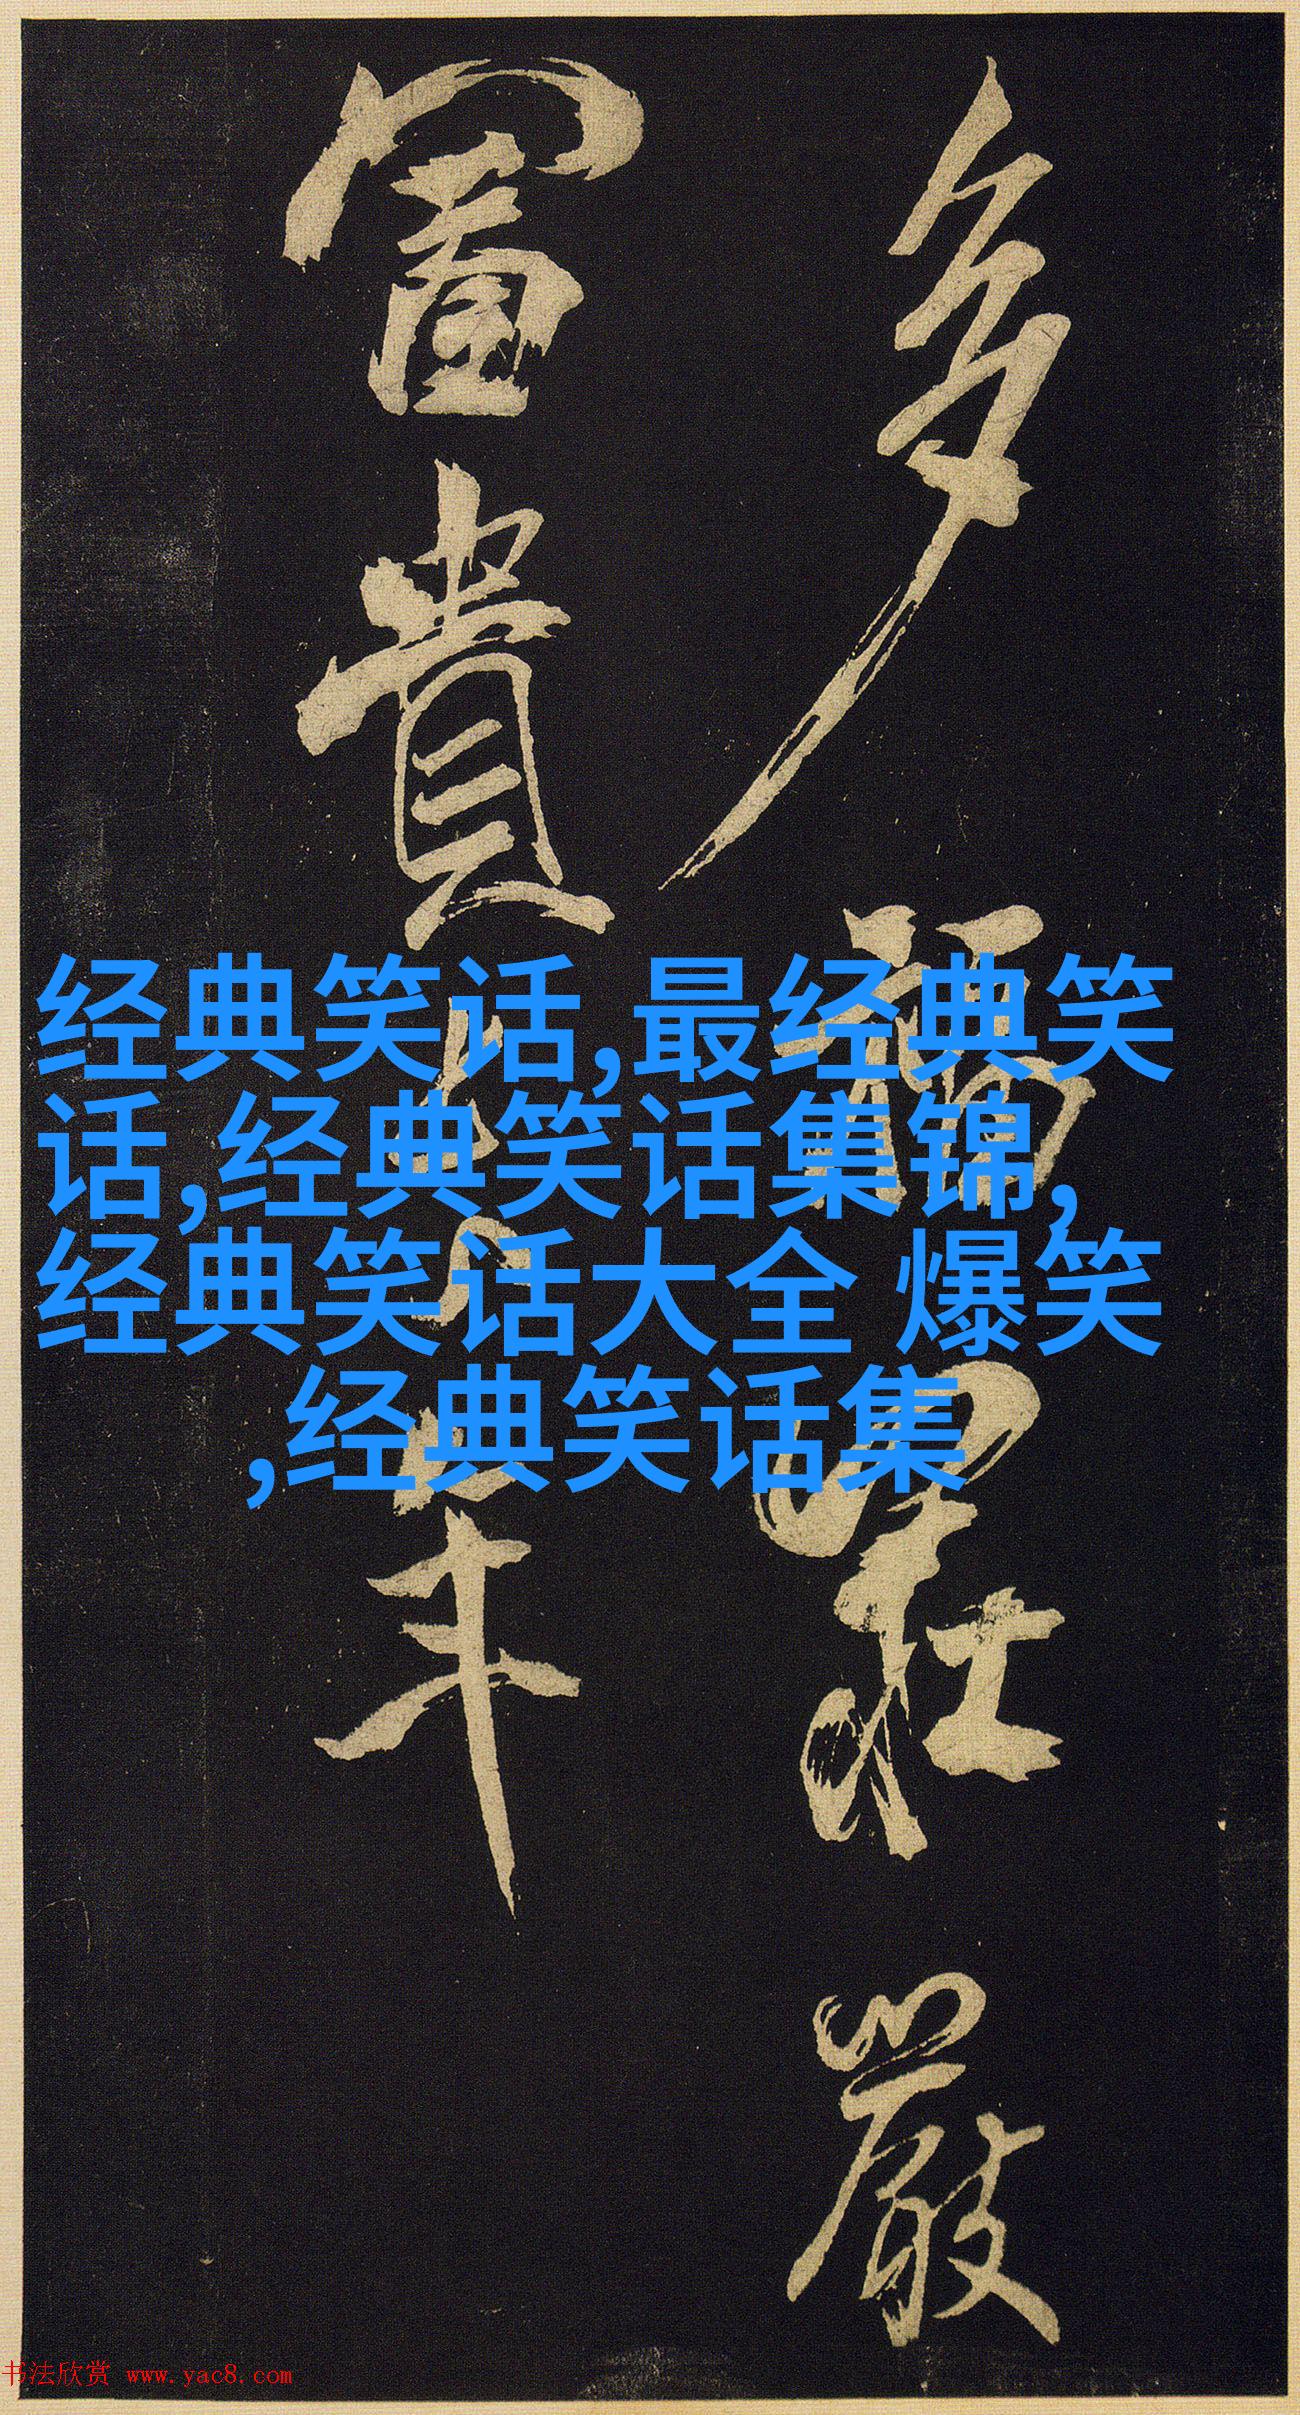 经典笑话,最经典笑
话,经典笑话集锦,
经典笑话大全 爆笑
,经典笑话集
多福嚴
富貴
书法欣赏 www.yac8.com